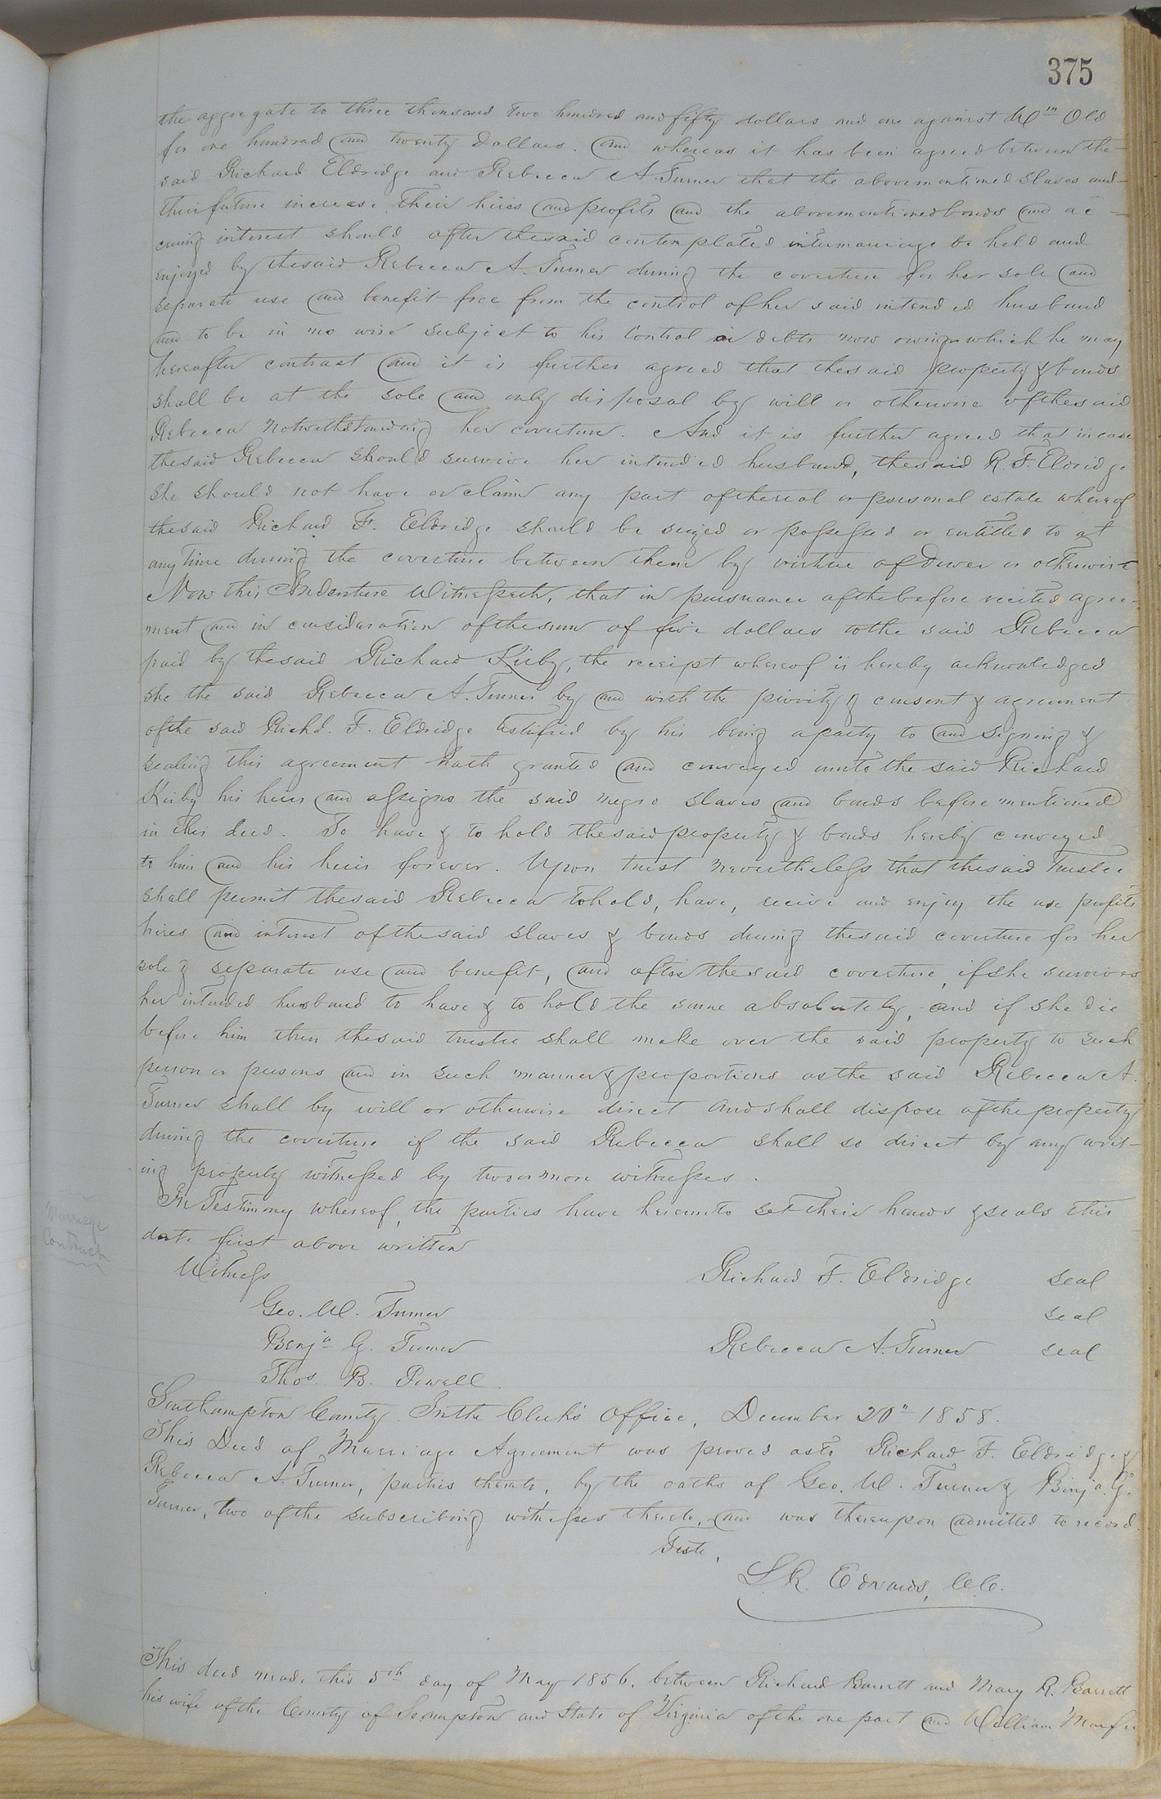 375
the aggregate to three thousand two hundred and fifty dollars and one against Wm Old
for one hundred and twenty Dollars. And whereas it has been agreed between the
said Richard Eldridge and Rebecca A. Turner that the abovementioned slaves and
their future increase. Their hires and profits and the abovementioned bonds and ac-
cruing interest should after the said contemplated intermarriage be held and
enjoyed by the said Rebecca A. Turner during the coverture for her sole and
separate use and benefit free from the control of her said intended husband
and to be in no wise subject to his control or debts now owing or which he may
hereafter contract and it is further agreed that the said property & bonds
shall be at the sole and only disposal by will or otherwise of the said
Rebecca notwithstanding her coverture. And it is further agreed that in case
the said Rebecca should survive her intended husband, the said R. F. Eldridge
she should not have or claim any part of the real or personal estate whereof
the said Richard F. Eldridge should be seized or possessed or entitled to at
any time during the coverture between them by virtue of Dower or otherwise
Now this Indenture Witnesseth, that in pursuance of the before recited agree-
ment and in consideration of the sum of five dollars to the said Rebecca
paid by the said Richard Kirby, the receipt whereof is hereby acknowledged
she the said Rebecca A. Turner by and with the privity & consent & agreement
of the said Richd. F. Eldridge testified by his being a party to and signing &
sealing this agreement hath granted and conveyed unto the said Richard
Kirby his heirs and assigns the said negro slaves and bonds before mentioned
in this deed. To have & to hold the said property & bonds hereby conveyed
to him and his heirs forever. Upon trust nevertheless that the said Trustee
shall permit the said Rebecca to hold, have, receive and enjoy the use profits
hires and interest of the said slaves & bonds during the said coverture for her
sole & separate use and benefit, and after the said coverture, if she survives
her intended husband to have & to hold the same absolutely, and if she die
before him then the said trustee shall make over the said property to such
person or persons and in such manner & proportions as the said Rebecca A.
Turner shall by will or otherwise direct and shall dispose of the property
during the coverture if the said Rebecca shall so direct by any writ-
ing properly witnessed by two or more witnesses.
In Testimony whereof, the parties have hereunto set their hands & seals this
date first above written
Marriage
Contract
Witness
Richard F. Eldridge seal
Geo. W. Turner
seal
Benja G. Turner
Rebecca A. Turner seal
Thos. B. Powell.
Southampton County. In the Clerk's Office, December 20th 1858.
This Deed of Marriage Agreement was proved as to Richard F. Eldridge &
Rebecca A. Turner, parties thereto, by the oaths of Geo. W. Turner & Benja. G.
Turner, two of the subscribing witnesses thereto, and was thereupon admitted to record.
Teste,
L. R. Edwards, C.C.
This deed made this 5th day of May 1856, between Richard Barrett and Mary R. Barrett
his wife of the County of Sohampton and State of Virginia of the one part and William